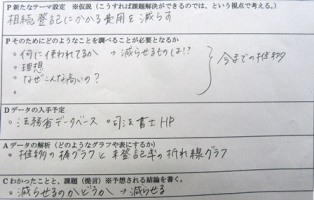 P 新たなテーマ設定 ※仮説（こうすれば課題解決ができるのでは、という視点で考える。）
相続登記にかかる費用を減らす
P そのためにどのようなことを調べることが必要となるか
・何に使われてるか → 減らせるものは!?
・理想
・なぜこんな高いの？
今までの推移
D データの入手予定
・法務省データベース ・司法書士HP
A データの解析（どのようなグラフや表にするか）
・推移の棒グラフと未登記率の折れ線グラフ
C わかったことと、課題（提言）※予想される結論を書く。
・減らせるのかどうか → 減らせる